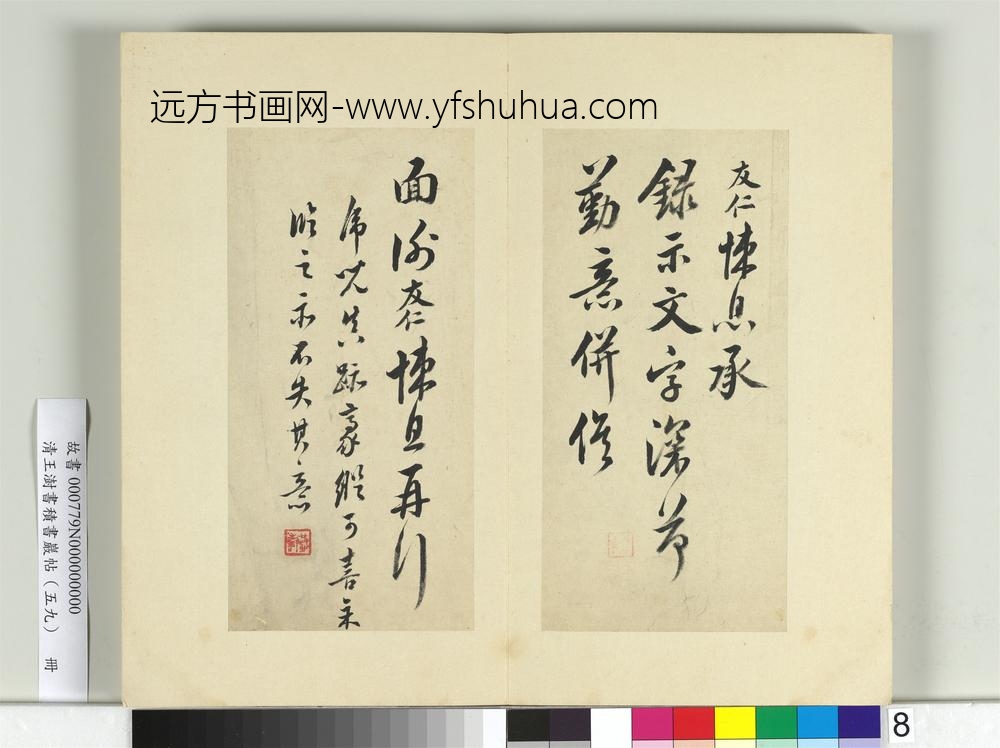 远方书画网-www.yfshuhua.com
友仁悚息承
錄示文字深荷
勤意併俟
面謝友仁悚息再行
虎児真跡豪縱可喜余
臨之亦不失其意
故書 000779N000000000
清王澍書積書巖帖（五九） 冊
8